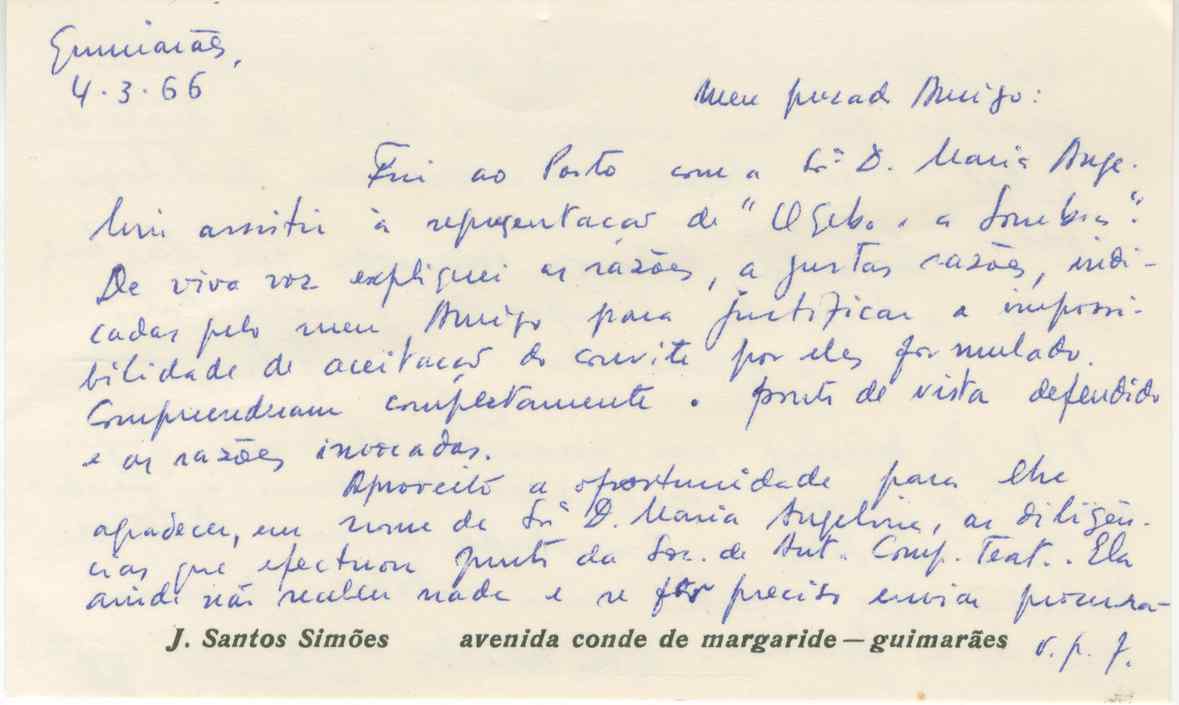 Guimarães,
4.3.66
Meu prezado Amigo:
Fui ao Porto com a Srª D. Maria Ange-
lina assistir à representação de "O Gebo e a Sombra".
De viva voz expliquei as razões, as justas razões, indi-
cadas pelo meu Amigo para justificar a impossi-
bilidade de aceitação do convite por eles formulado.
Compreenderam completamente o ponto de vista defendido
e as razões invocadas.
Aproveito a oportunidade para lhe
agradecer, em nome da Srª D. Maria Angelina, as diligên-
cias que efectuou junto da Soc. de Aut. Comp. Teat.. Ela
ainda não recebeu nada e se for preciso enviar procura-
J. Santos Simões avenida conde de margaride — guimarães
v. p. f.